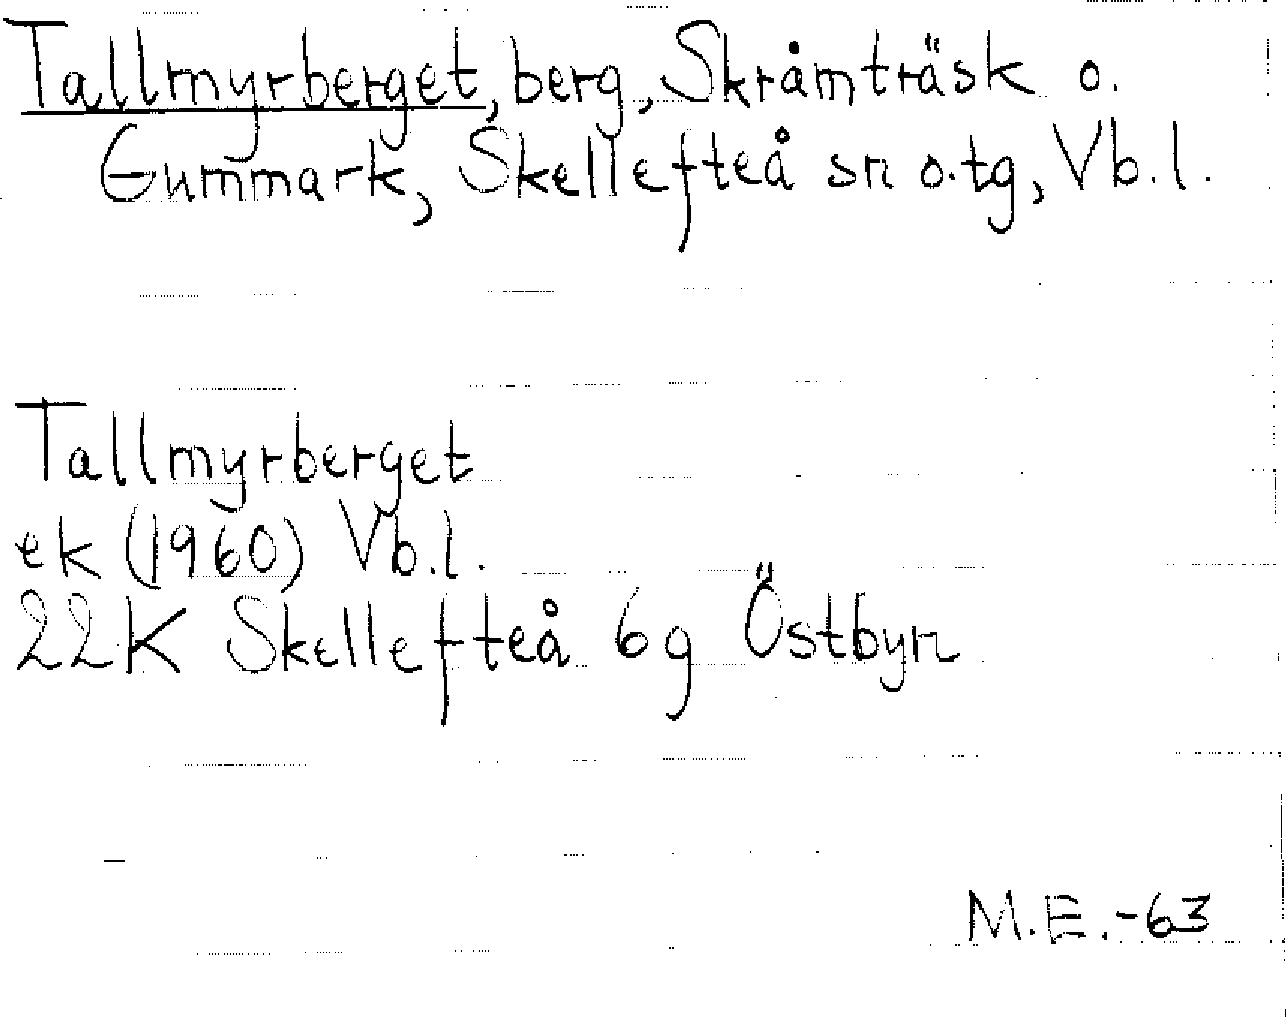 Tallmyrberget, berg, Skråmträsk o.
Gummark, Skellefteå sn o. tg, Vb. l.
Tallmyrberget
ek (1960) Vb. l.
22K Skellefteå 6g Östbyn
M.E. -63